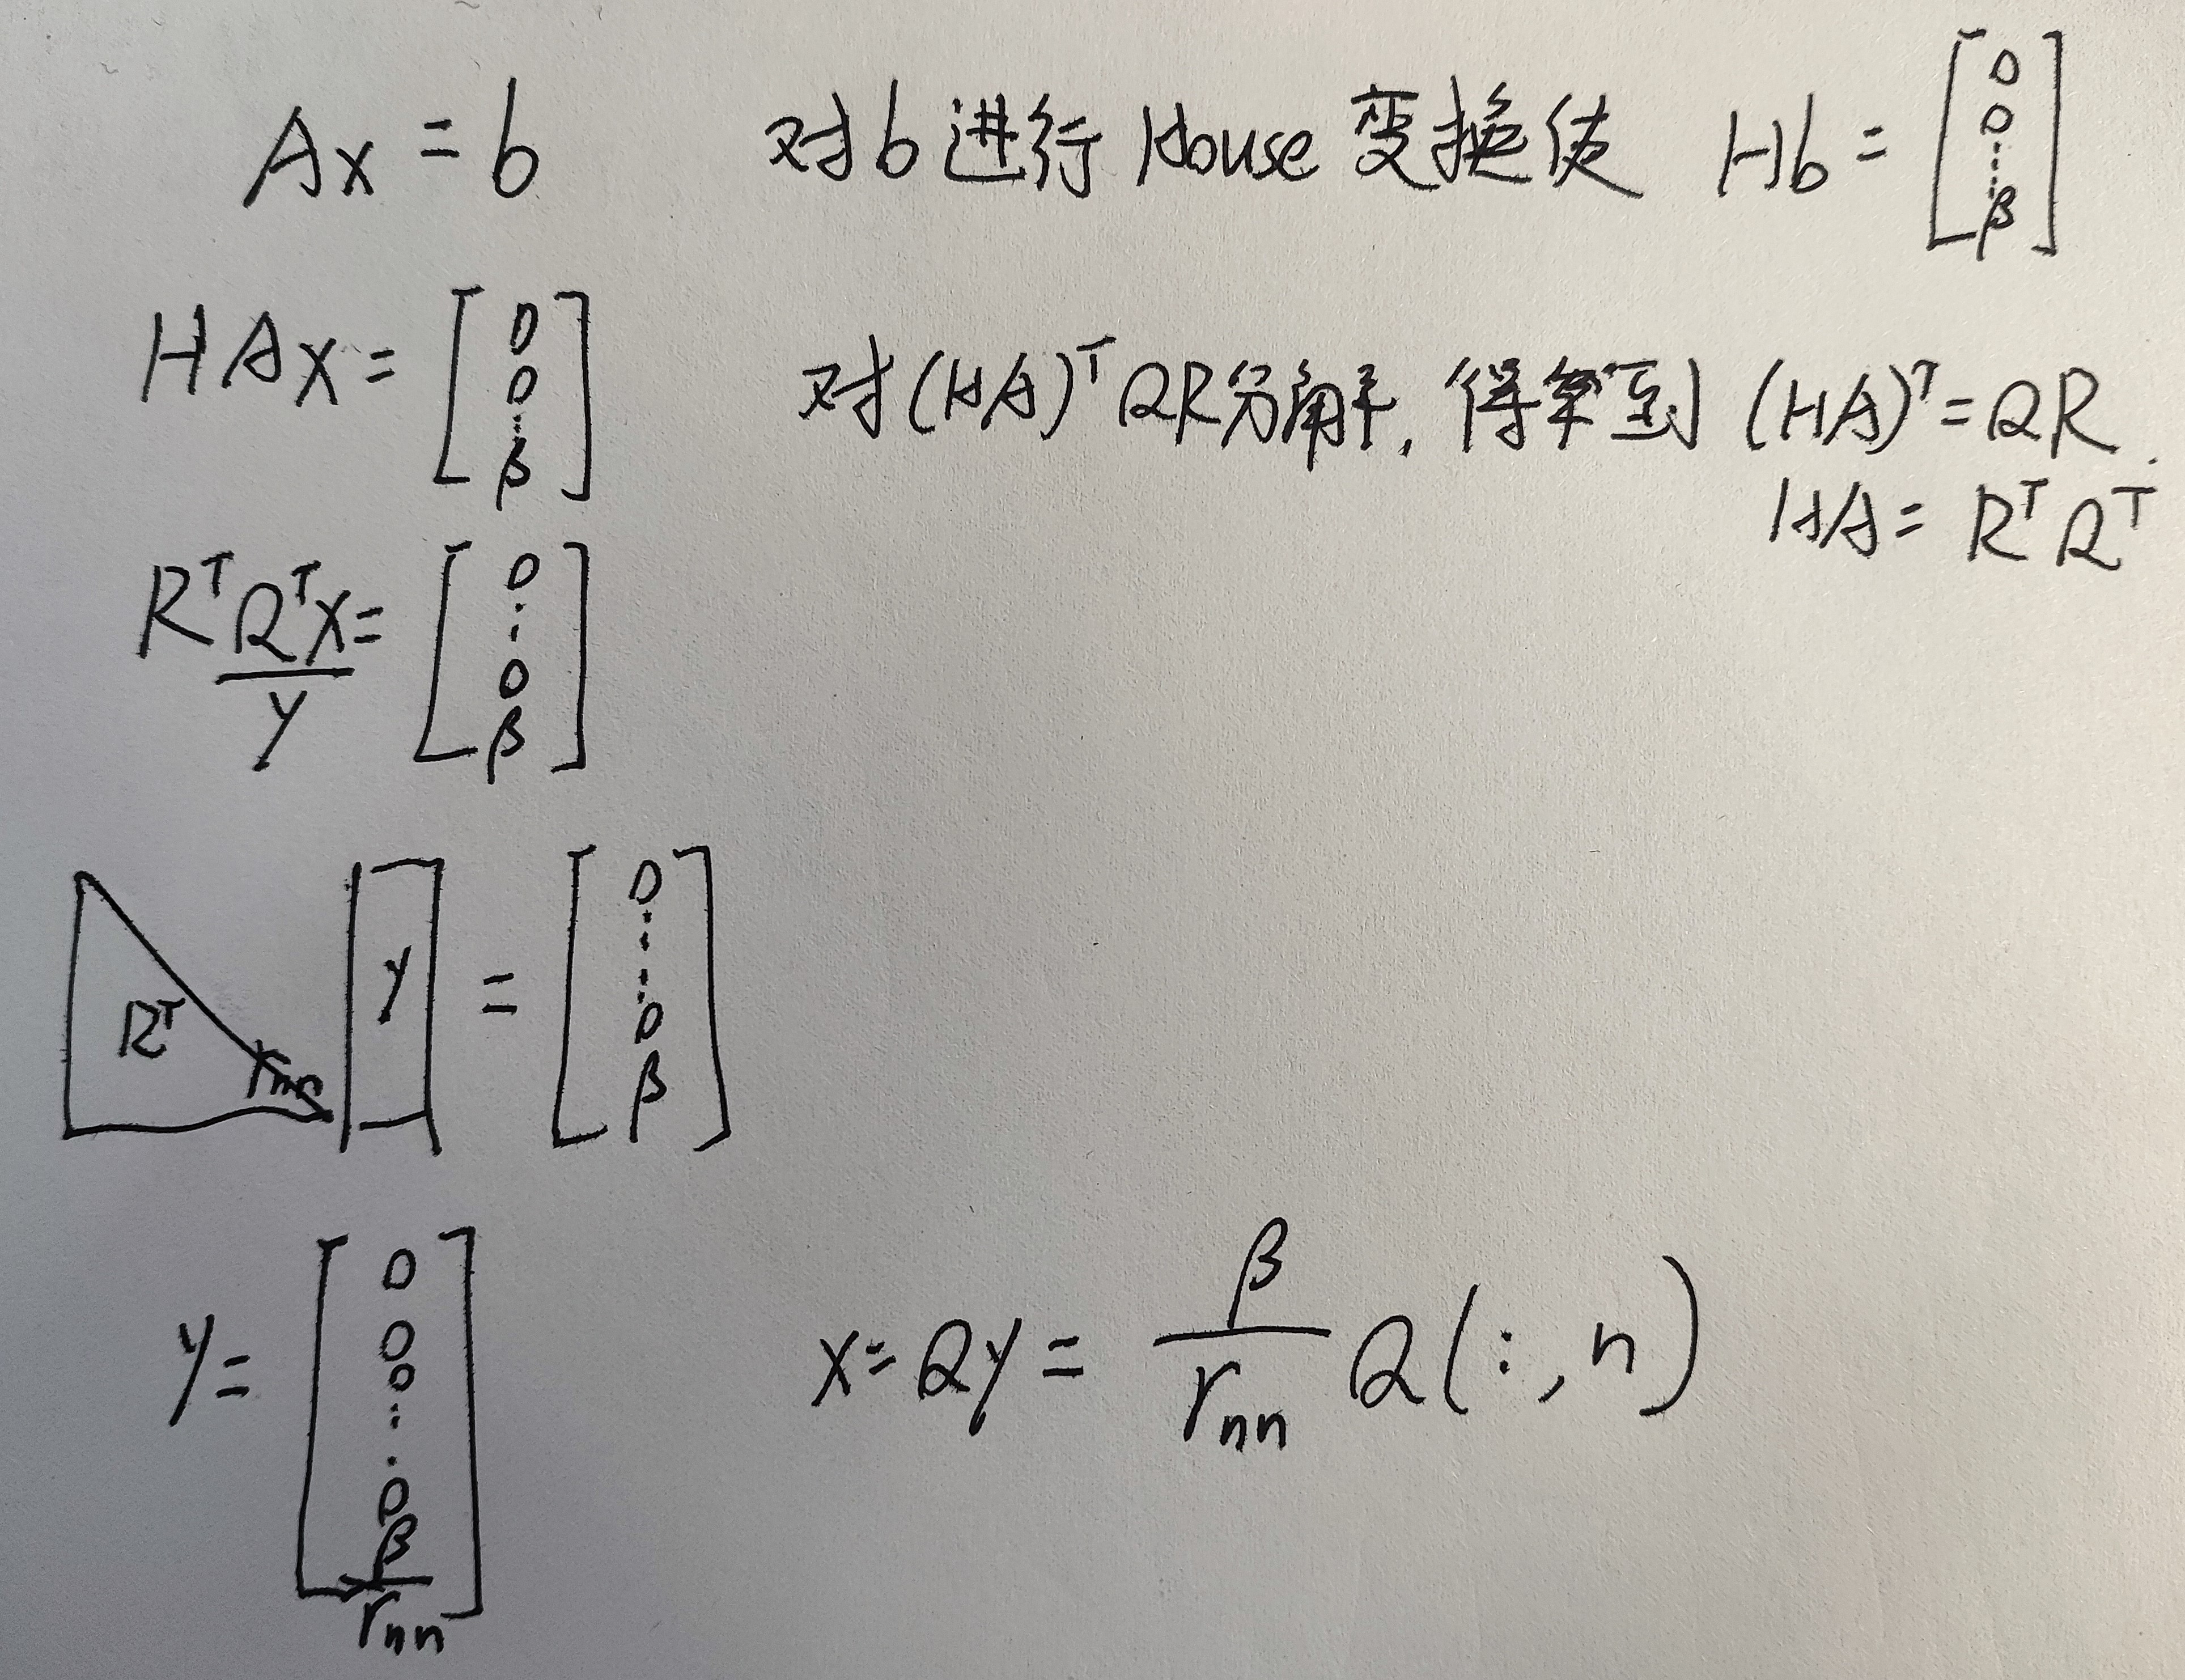 Ax = b 对b进行House变换使 Hb = [0 0 ⋮ β]
HAx = [0 0 ⋮ β] 对(HA)ᵀQR分解, 得到 (HA)ᵀ = QR.
HA = RᵀQᵀ
RᵀQᵀx = [0 ⋮ 0 β]
y
Rᵀ rₙₙ [y] = [0 ⋮ ⋮ 0 β]
y = [0 0 0 ⋮ 0 β/rₙₙ] x = Qy = β/rₙₙ Q(:,n)